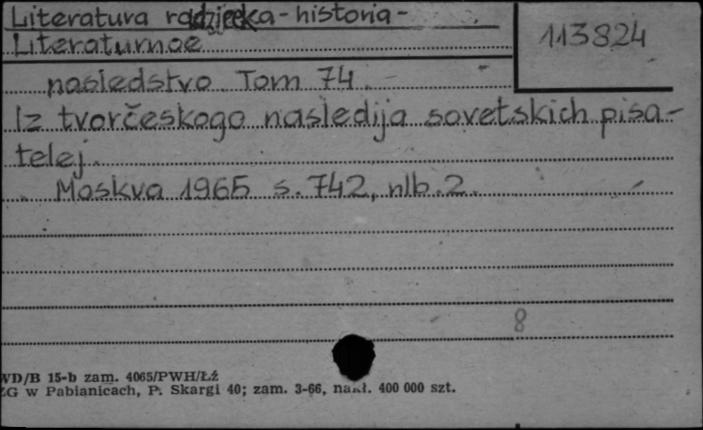 Literatura radziecka - historia -
113824
Literaturnoe
nasledstvo. Tom 74.
Iz tvorčeskogo nasledija sovetskich pisa-
telej.
Moskva 1965 s. 742, nlb. 2.
8
WD/B 15-b zam. 4065/PWH/Łź
ZG w Pabianicach, P. Skargi 40; zam. 3-66, nakł. 400 000 szt.